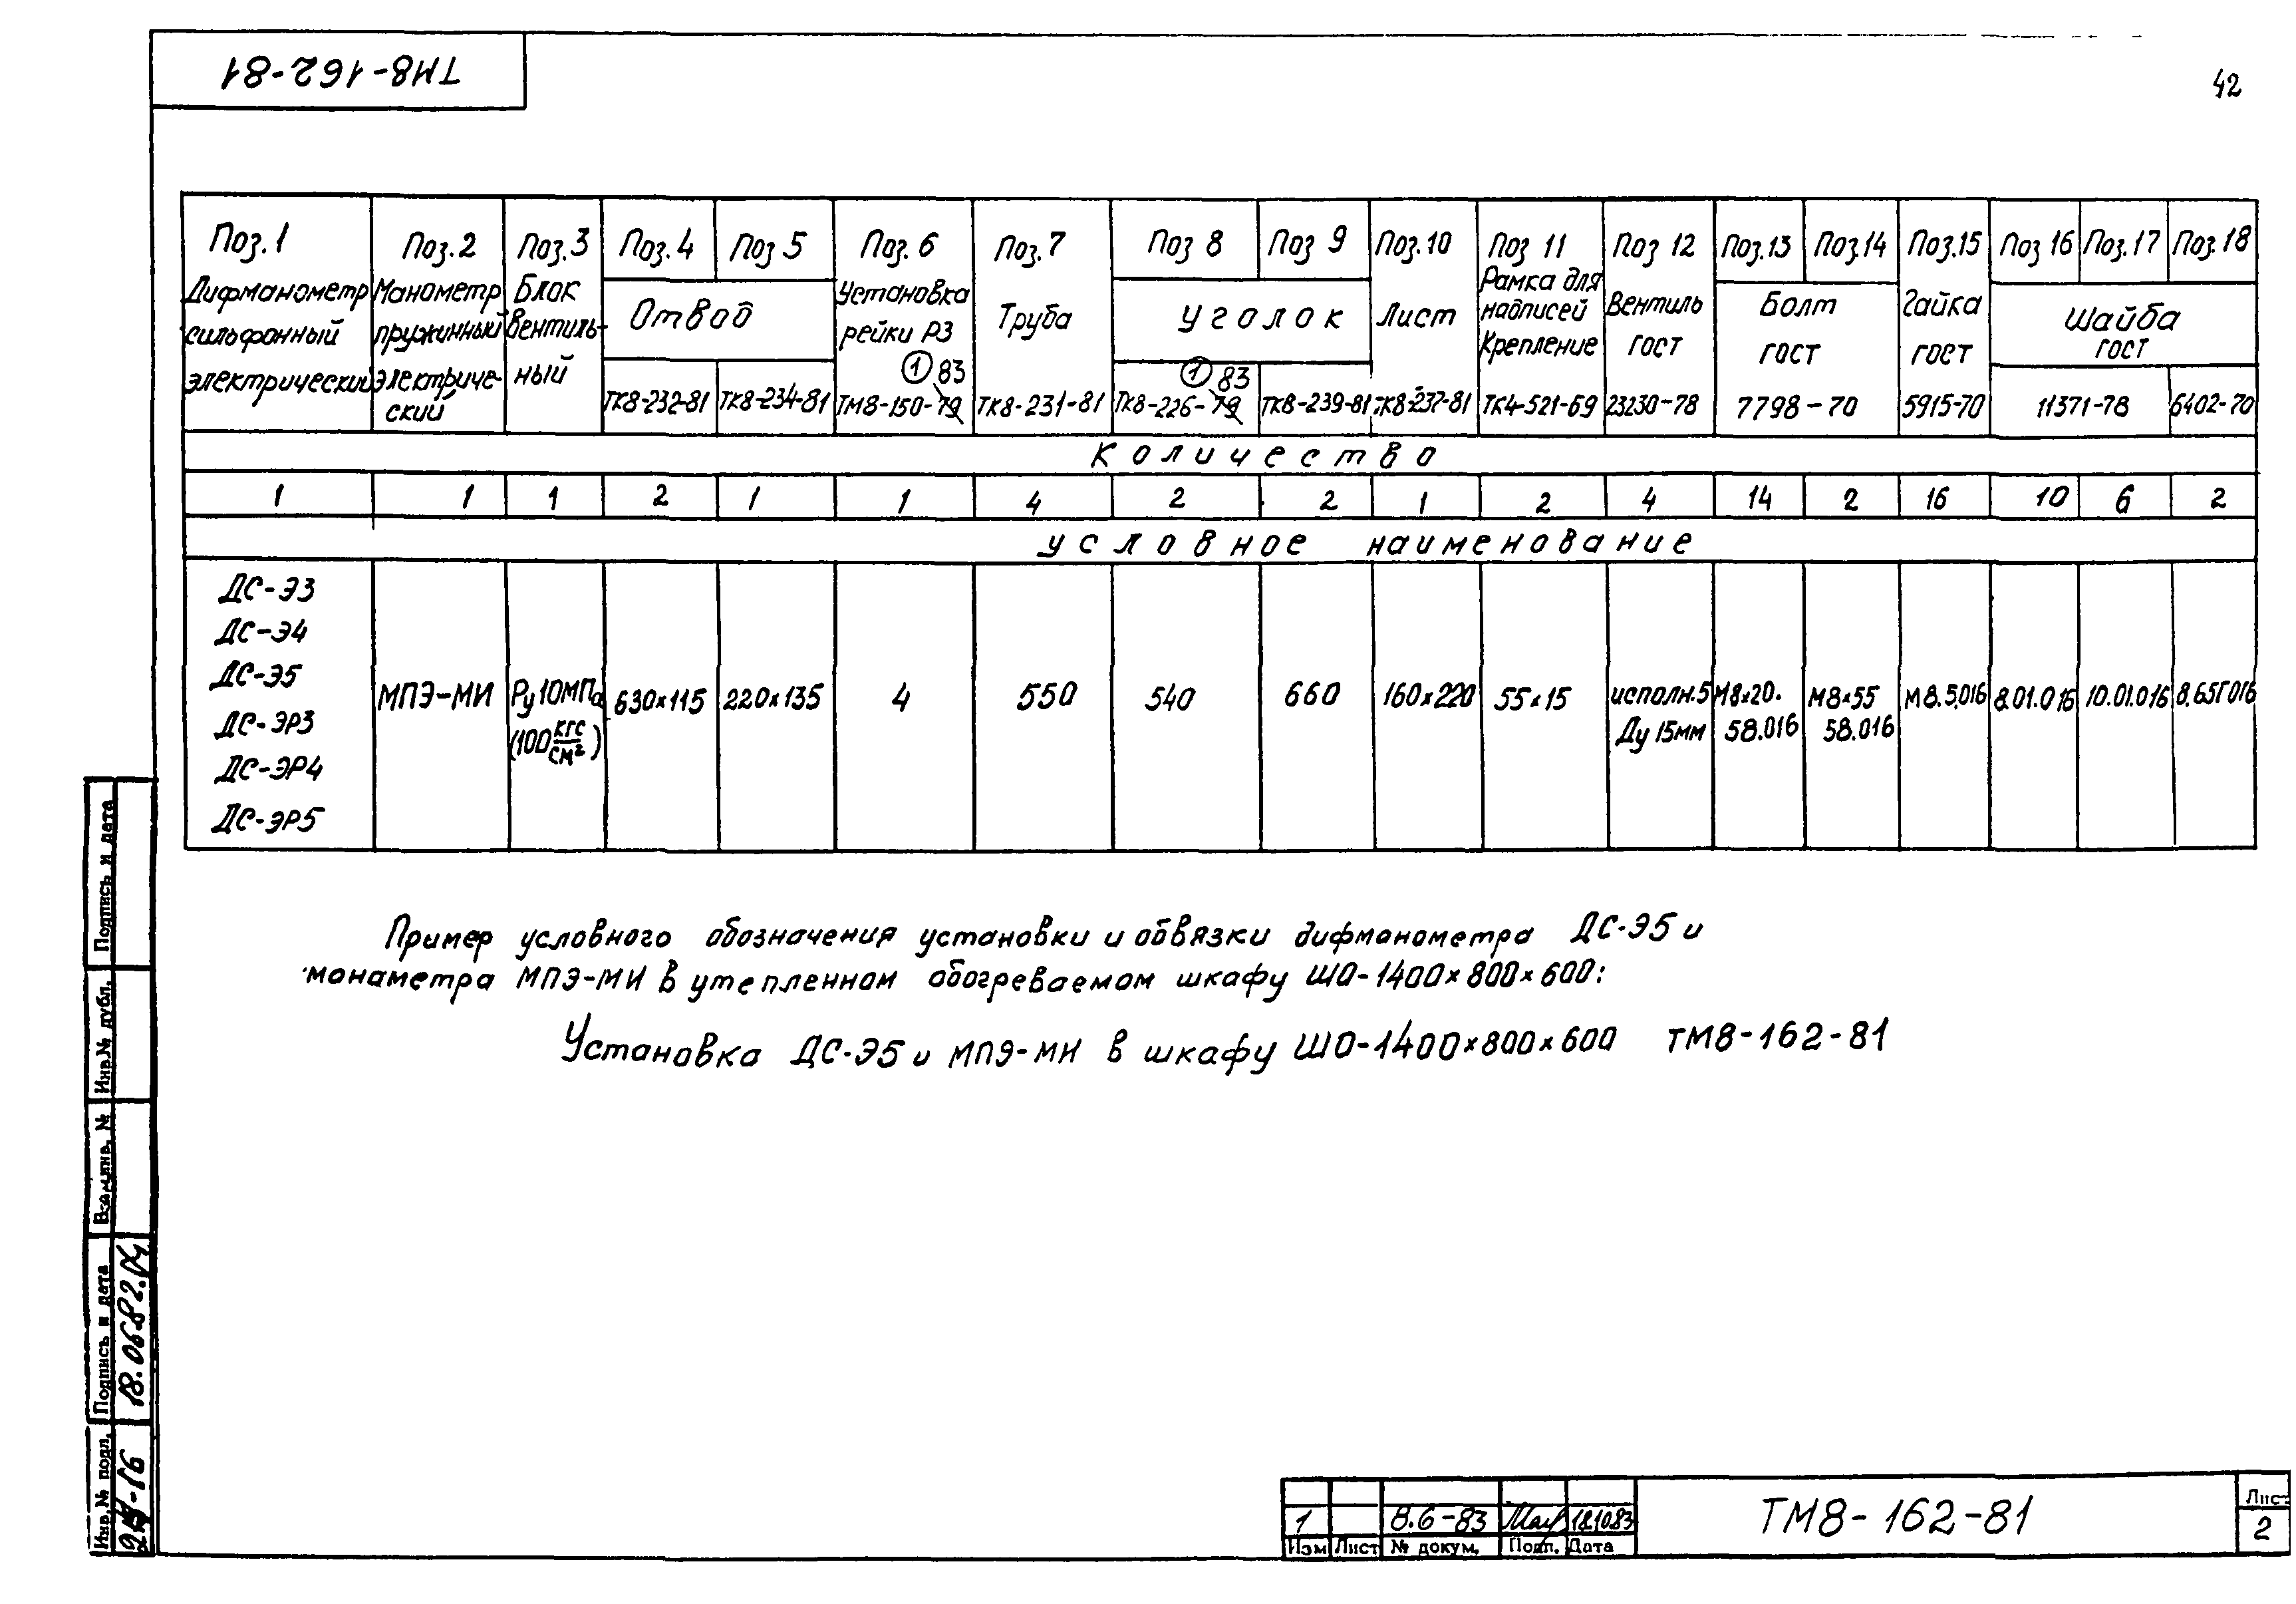 ТМ8-162-81
42
Поз.1 Поз.2 Поз.3 Поз.4 Поз 5 Поз. 6 Поз. 7 Поз 8 Поз 9 Поз.10 Поз 11 Поз 12 Поз.13 Поз.14 Поз.15 Поз 16 Поз.17 Поз.18
Дифманометр сильфонный электрический
Манометр пружинный электриче-ский
Блок вентиль-ный
Отвод
ТК8-232-81 ТК8-234-81
Установка рейки Р3
① 83
ТМ8-150-79
Труба
ТК8-231-81
Уголок
① 83
ТК8-226-79 ТК8-239-81
Лист
ТК8-237-81
Рамка для надписей Крепление
ТК4-521-69
Вентиль ГОСТ
23230-78
Болт ГОСТ
7798-70
Гайка ГОСТ
5915-70
Шайба ГОСТ
11371-78 6402-70
Количество
1 1 1 2 1 1 4 2 2 1 2 4 14 2 16 10 6 2
Условное наименование
ДС-Э3
ДС-Э4
ДС-Э5
ДС-ЭР3
ДС-ЭР4
ДС-ЭР5
МПЭ-МИ
Ру 10МПа
(100 кгс/см²)
630х115 220х135 4 550 540 660 160х220 55х15
исполн.5
Ду 15мм
М8х20.
58.016
М8х55
58.016
М8.5.016 8.01.016 10.01.016 8.65Г016
Пример условного обозначения установки и обвязки дифманометра ДС-Э5 и
манаметра МПЭ-МИ в утепленном обогреваемом шкафу ШО-1400х800х600:
Установка ДС-Э5 и МПЭ-МИ в шкафу ШО-1400х800х600 ТМ8-162-81
Подпись и дата
Инв.№ дубл.
Взам.инв. №
Подпись и дата
18.0682.
Инв.№ подл.
1 8.6-83 18.10.83
Изм Лист № докум. Подп. Дата
ТМ8-162-81
Лист
2